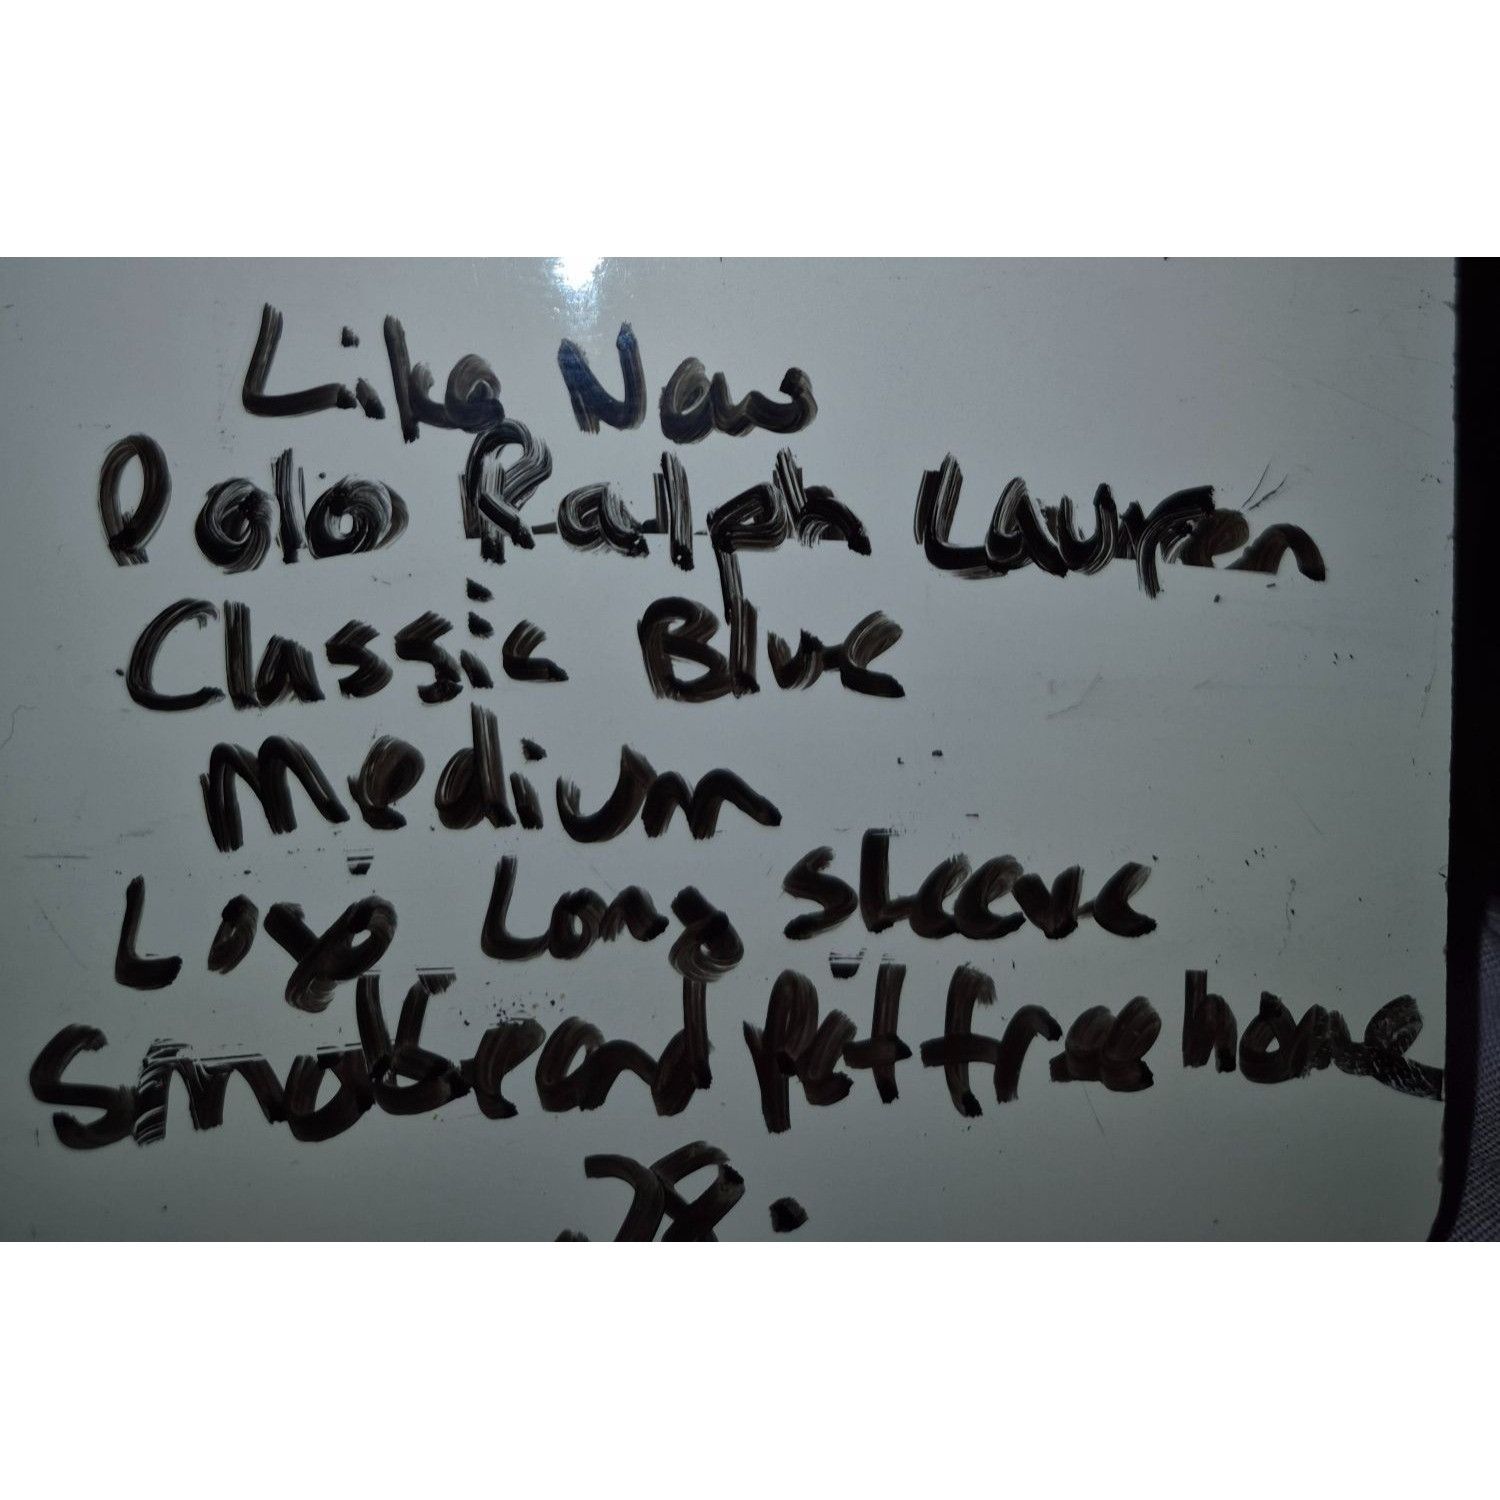 Like New
Polo Ralph Lauren
Classic Blue
Medium
Long Sleeve
Smoke and Pet free home
28.